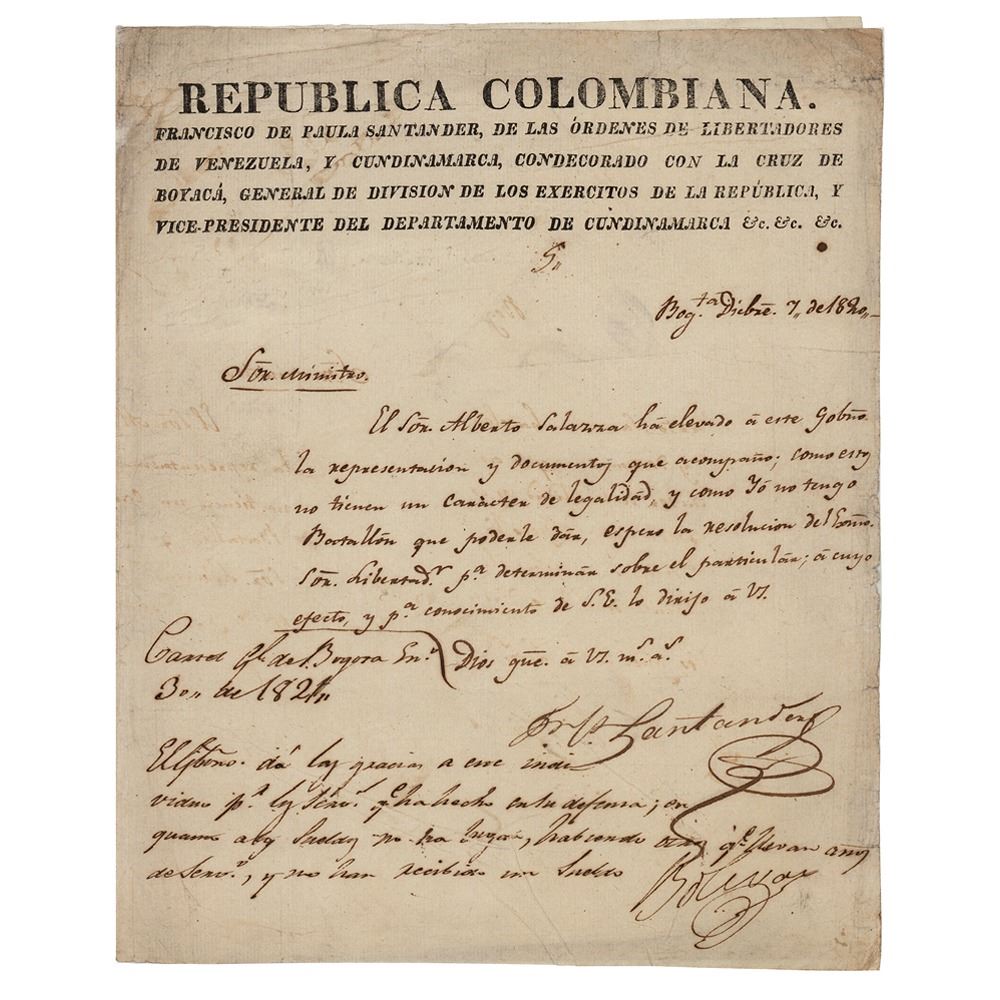 REPUBLICA COLOMBIANA.
FRANCISCO DE PAULA SANTANDER, DE LAS ÓRDENES DE LIBERTADORES
DE VENEZUELA, Y CUNDINAMARCA, CONDECORADO CON LA CRUZ DE
BOYACÁ, GENERAL DE DIVISION DE LOS EXERCITOS DE LA REPÚBLICA, Y
VICE-PRESIDENTE DEL DEPARTAMENTO DE CUNDINAMARCA &c. &c. &c.
Bog.ta Dicbre. 7,, de 1820,,
Sōr. Ministro.
El Sōr. Alberto Salazza há elevado á este Gobno.
la representacion y documentos que acompaño; como estos
no tienen un carácter de legalidad, y como Yó no tengo
Batallón que poderle dár, espero la resolucion del Exmo.
Sōr. Libertad.r p.a determinár sobre el particulár; á cuyo
efecto, y p.a conocimiento de S.E. lo dirijo á VS.
Dios gūe. á VS. m.s a.s
Cartel Gl. de Bogota En.o
30,, de 1821,,
Santander
El Gbno. dá las gracias a ese indi
viduo p.r los serv.s q.e ha hecho en su defensa; en
quanto a los sueldos no ha lugar, habiendo otros q.e llevan años
de serv.o, y no han recibido un sueldo
Bolivar